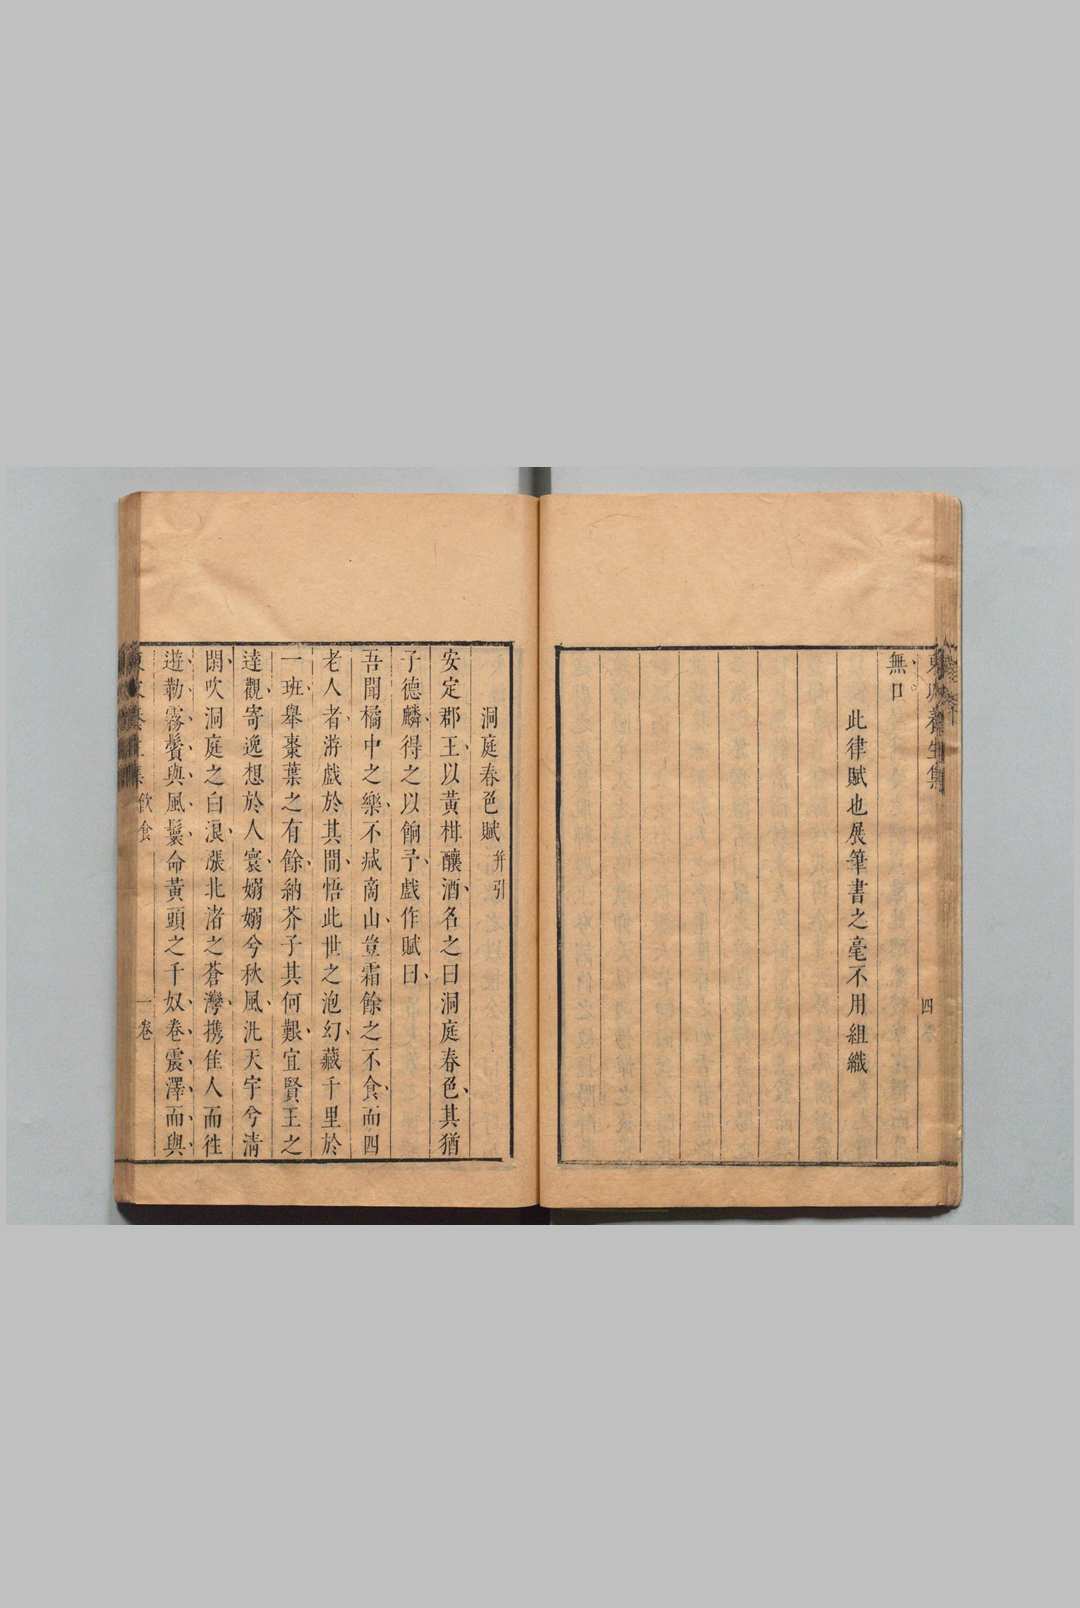 東坡養生集
四
無口
此律賦也展筆書之毫不用組織
洞庭春色賦并引
安定郡王以黃柑釀酒名之曰洞庭春色其猶
子德麟得之以餉予戲作賦曰
吾聞橘中之樂不減商山豈霜餘之不食而四
老人者游戲於其間悟此世之泡幻藏千里於
一班舉棗葉之有餘納芥子其何艱宜賢王之
達觀寄逸想於人寰嫋嫋兮秋風泬天宇兮清
閑吹洞庭之白浪漲北渚之蒼灣携佳人而徃
遊勒霧鬢與風鬟命黃頭之千奴卷震澤而與
飲食
一卷